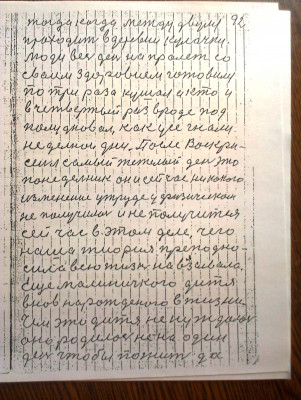 тогда когда между двумя 92
проходит в деревни кулачки.
люди вес ден на пролет со
своим здоровием готовили
по три раза кушал а кто и
в четвертый раз вроде под
полудновал, как уже гнали
неделной ден, После Воскри-
сения самый тежелый ден это
понеделник они сейчас никакого
изменение у труде, у физическом
не получилос и не получится
сейчас в этом деле, чего
наша тиория преподно-
сила всю жизн на взывала,
еще маленичкого дитя
внов нарожденого в жизни.
Чем это дитя не нуждалос
оно родилос не на один
ден чтобы пожит да